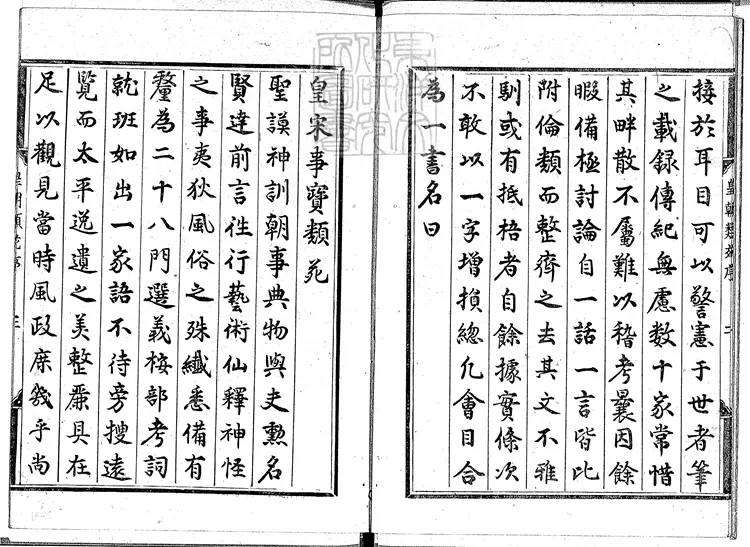 接於耳目可以警憲于世者筆
之載録傳紀無慮数十家常惜
其畔散不屬難以稽考曩因餘
暇備極討論自一話一言皆此
附倫類而整齊之去其文不雅
馴或有抵梧者自餘據實條次
不敢以一字增損總凢會目合
為一書名曰
皇朝類苑序
二
皇宋事寶類苑
聖謨神訓朝事典物與夫勲名
賢達前言徃行藝術仙釋神怪
之事夷狄風俗之殊纎悉備有
釐為二十八門選義桉部考詞
就班如出一家語不待旁搜遠
覽而太平逸遺之美整厤具在
足以觀見當時風政庶幾乎尚
皇朝類苑序
三